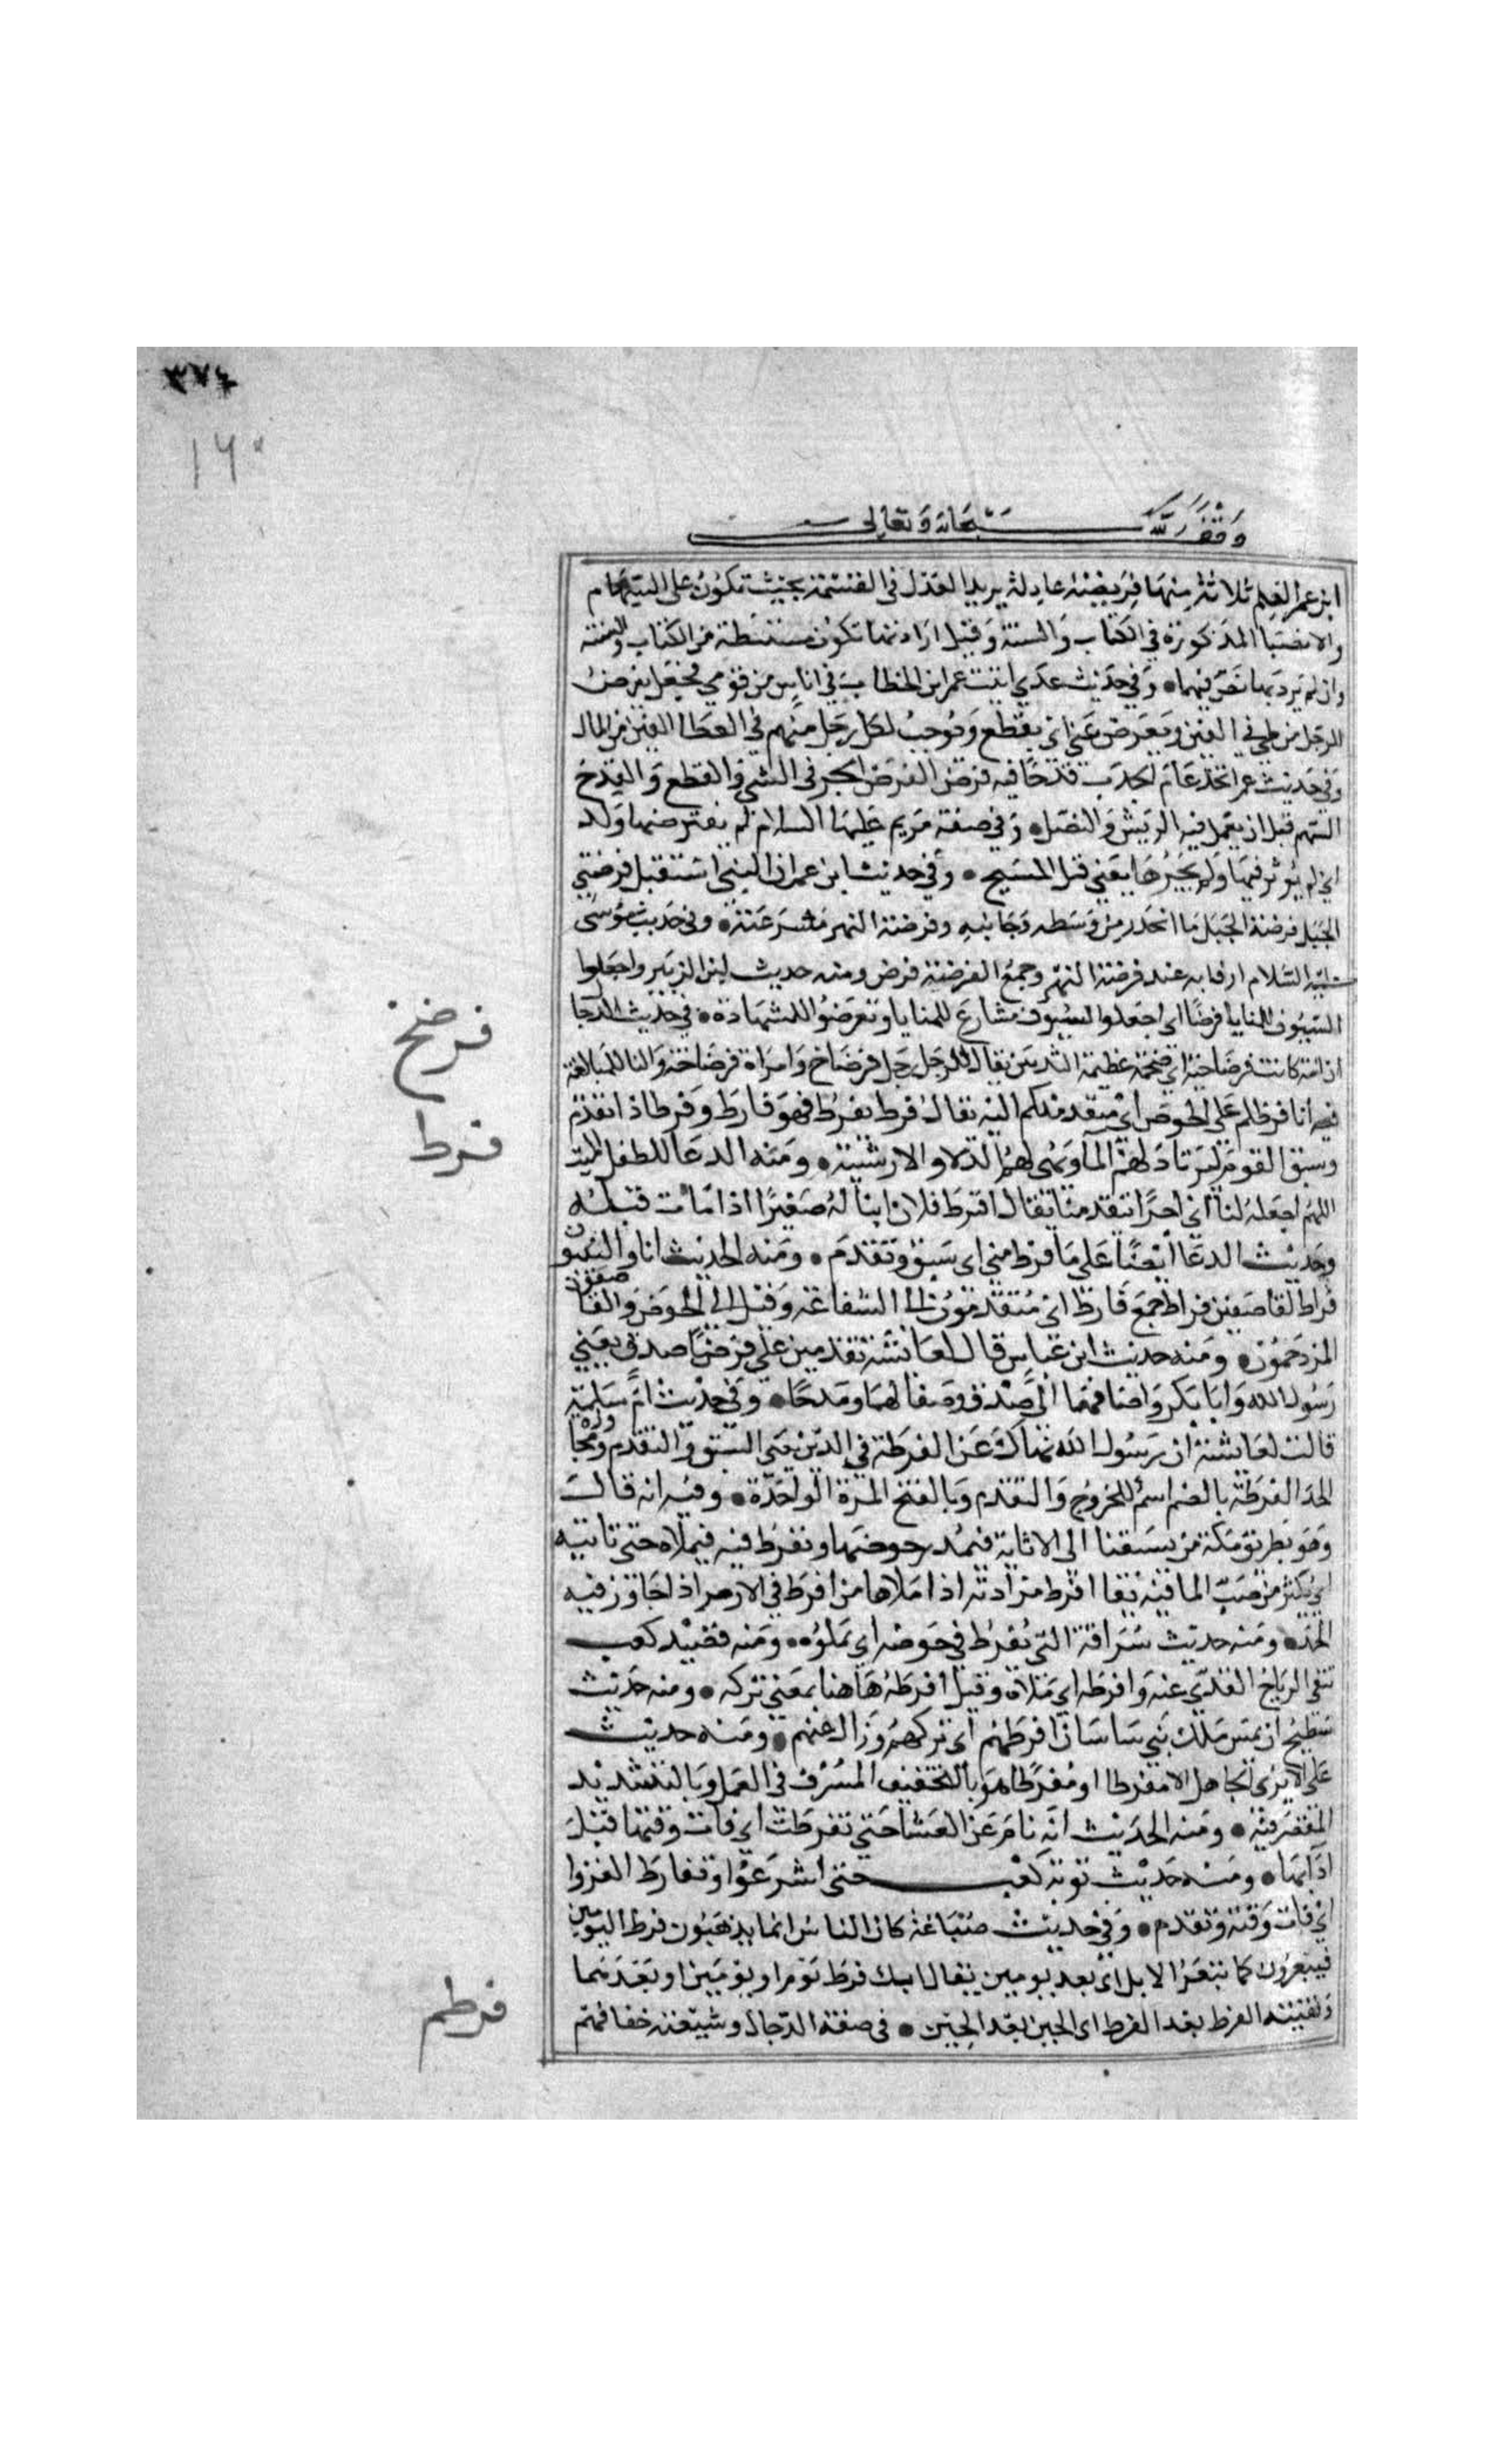 ٣٧٤
١٦٥
وقف لله سبحانه وتعالى
ابن عمر العلم ثلاثة منها فريضة عادلة يريد العدل في القسمة بحيث تكون على السهام
والانصبا المذكورة في الكتاب والسنة وقيل اراد نها تكون مستنبطة من الكتاب والسنة
وان لم يرد بها نص فيهما • وفي حديث عدي اتيت عمر ابن الخطاب في اناس من قومي فجعل يفرض
للرجل من طي في الفين ويعرض عني اي يقطع ويوجب لكل رجل منهم في العطا الفين من المال
وفي حديث عمر اتخذ عام الجدب قدحا فيه فرض الفرض الحز في الشي والقطع والقدح
السهم قبل ان يعمل فيه الريش والنصل • وفي صفة مريم عليها السلام لم يفترضها ولد
اي لم يوثر فيها ولم يحزها يعني قبل المسيح • وفي حديث ابن عمر ان النبي استقبل فرضتي
الجبل فرضة الجبل ما انحدر من وسطه وجانبه وفرضة النهر مشرعته • وفي حديث موسى
عليه السلام ارفا به عند فرضة النهر وجمع الفرضة فرض ومنه حديث ابن الزبير واجعلوا
السيوف للمنايا فرضا اي اجعلوا السيوف مشارع للمنايا وتعرضوا للشهادة • في حديث الدجال
فرضخ
ان امه كانت فرضاخية اي ضخمة عظيمة الثديين يقال للرجل رجل فرضاخ وامراة فرضاخة والتا للمبالغة
فيه انا فرطكم على الحوض اي متقدمكم اليه يقال فرط يفرط فهو فارط وفرط اذا تقدم
فرط
وسبق القوم ليرتاد لهم الما ويهي لهم الدلا والارشية • ومنه الدعا للطفل الميت
اللهم اجعله لنا اي اجرا تتقدمنا يقال افترط فلان ابنا له صغيرا اذا مات قبله
وحديث الدعا ايضا على ما فرط مني اي سبق وتقدم • ومنه الحديث انا والنبيون
فراط لقاصفين فراط جمع فارط اي متقدمون الى الشفاعة وقيل الى الحوض والقاصفون
المزدحمون • ومنه حديث ابن عباس قال لعائشة تقدمين على فرط صدق يعني
رسول الله وابا بكر واضافهما الى صدق وصفا لهما ومدحا • وفي حديث ام سلمة
قالت لعايشة ان رسول الله نهاك عن الفرطة في الدين يعني السبق والتقدم ومجاوزة
الحد الفرطة بالضم اسم للخروج والتقدم وبالفتح المرة الواحدة • وفيه انه قال
وهو بطريق مكة من يسبقنا الى الاثاية فيمدر حوضها ويفرط فيه فيملاه حتى تاتيه
اي يكثر من صب الما فيه يقال افرط مزادته اذا ملاها من افرط في الامر اذا جاوز فيه
الحد • ومنه حديث سراقة التي يفرط في حوضه اي يملوه • ومنه قصيد كعب
تنفي الرياح القذي عنه وافرطه اي ملاه وقيل افرطه هاهنا بمعنى تركه • ومنه حديث
سطيح ان يمس ملك بني ساسان افرطهم اي تركهم وزال عنهم • ومنه حديث
على لا يرى الجاهل الا مفرطا او مفرطا هو بالتخفيف المسرف في العمل وبالتشديد
المقصر فيه • ومنه الحديث انه نام عن العشا حتى تفرطت اي فات وقتها قبل
ادايها • ومنه حديث توبة كعب حتى اشرعوا وتفارط الغزوا
اي فات وقته وتقدم • وفي حديث ضباعة كان الناس انما يذهبون فرط اليومين
فيبعرون كما تبعر الابل اي بعد يومين يقال اتيك فرط يوم او يومين او بعدهما
ولقيته الفرط بعد الفرط اي الحين بعد الحين • في صفة الدجال وشيعته خفافهم
فرطم